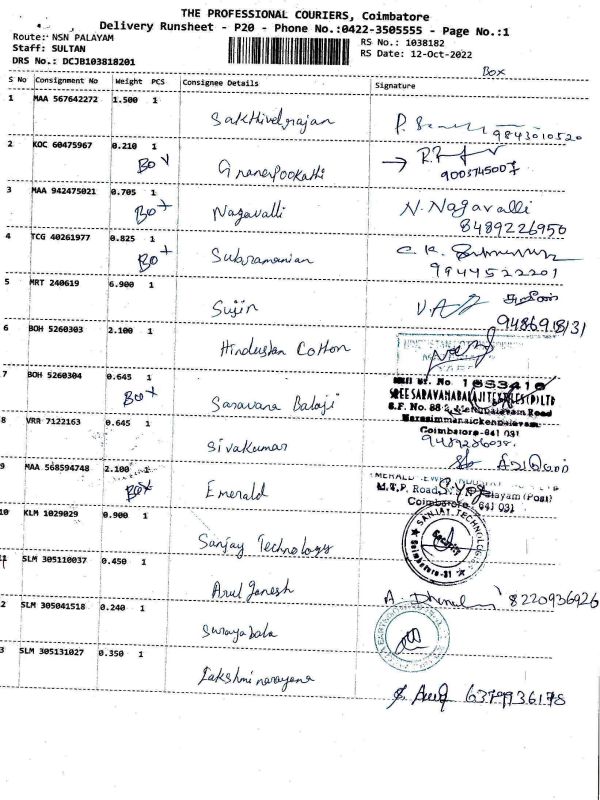 THE PROFESSIONAL COURIERS, Coimbatore
Delivery Runsheet - P20 - Phone No.:0422-3505555 - Page No.:1
Route: NSN PALAYAM
RS No.: 1038182
Staff: SULTAN
RS Date: 12-Oct-2022
DRS No.: DCJB103818201
Box
S No Consignment No Weight PCS Consignee Details Signature
1 MAA 567642272 1.500 1
Sakthivelrajan 9843010520
2 KOC 60475967 0.210 1
Box Gnanerpookathi 9003745007
3 MAA 942475021 0.705 1
Box Nagavalli N. Nagavalli
8489226950
4 TCG 40261977 0.825 1
Box Subramanian C. K.
9944522201
5 MRT 240619 6.900 1
Sujin
9486918131
6 BOH 5260303 2.100 1
Hindustan Cotton
7 BOH 5260304 0.645 1
Box Saravana Balaji
SREE SARAVANABALAJI TEXTILES (P) LTD
Narasimmanaickenpalayam
Coimbatore-641 031
8 VRR 7122163 0.645 1
Sivakumar
9 MAA 568594748 2.100 1
Box Emerald
EMERALD
M.T.P. Road,
(Post)
Coimbatore 641 031
10 KLM 1029029 0.900 1
Sanjay Technology
SANJAY TECHNOLOGY
Security
Coimbatore-31
11 SLM 305110037 0.450 1
Arul Ganesh 8220936926
2 SLM 305041518 0.240 1
Surayabala
3 SLM 305131027 0.350 1
Lakshminarayana
6379936178